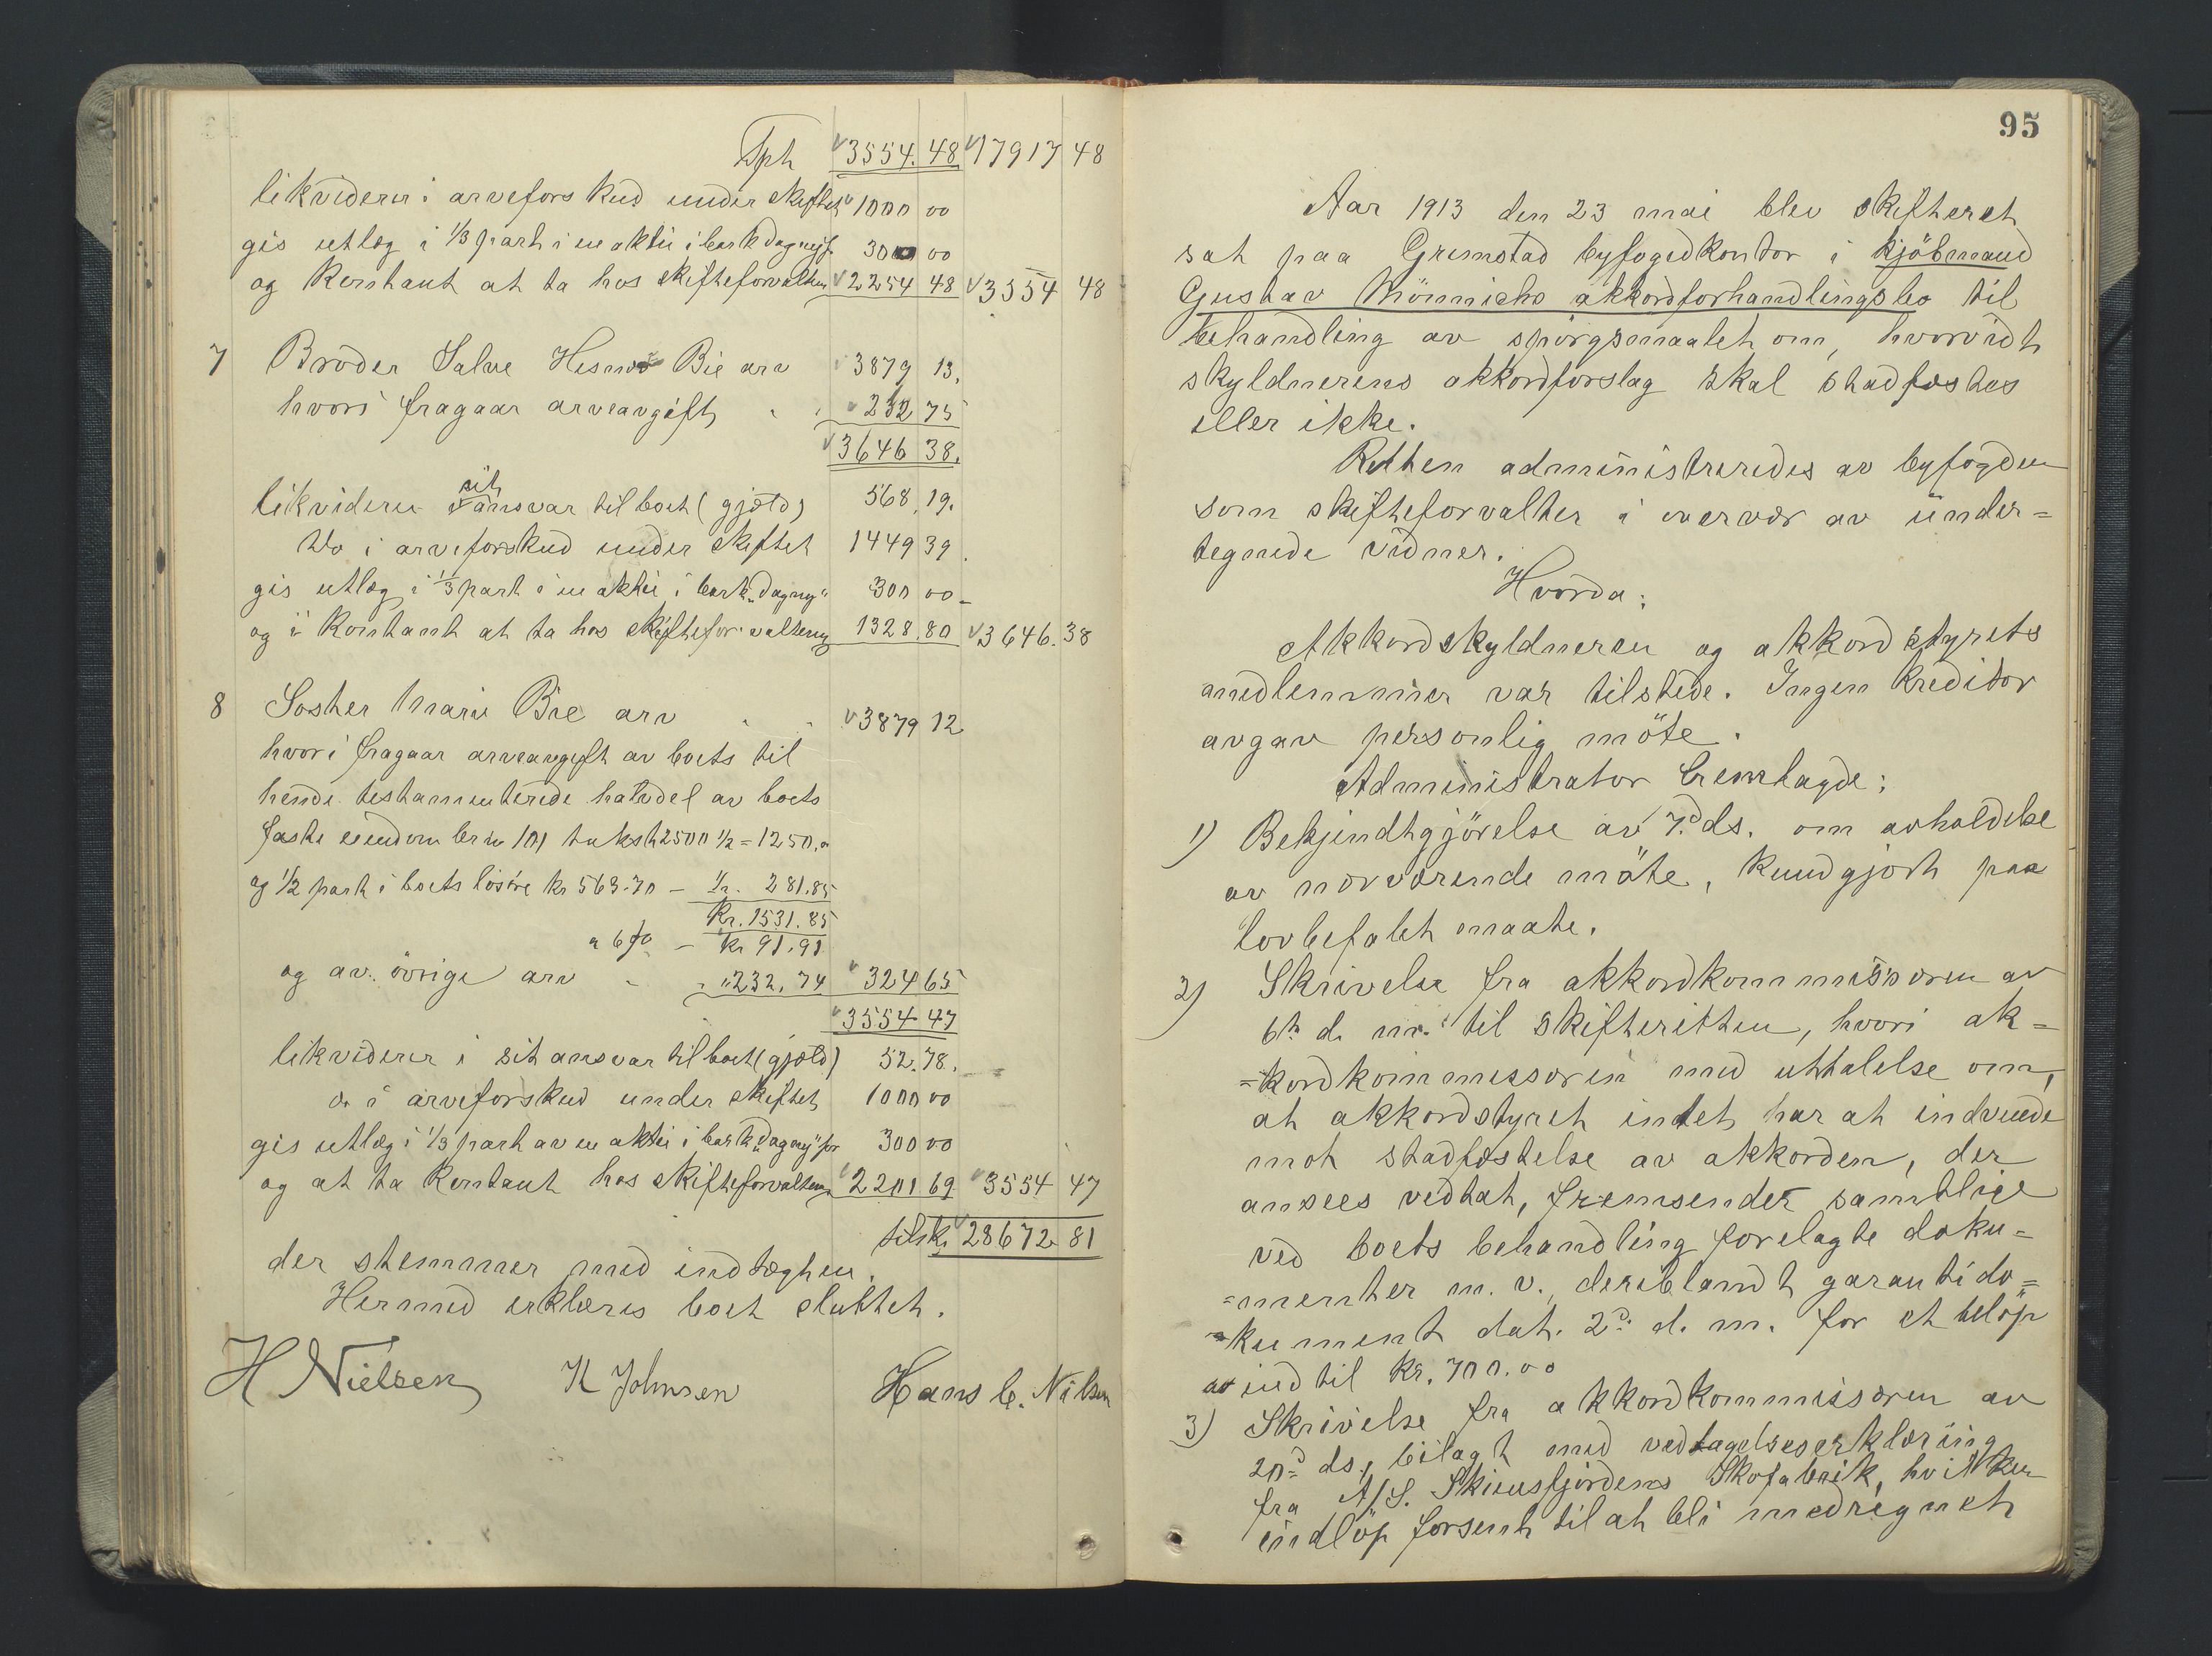 Tph 3554.48 17917 48
likviderer i arveforskud under skiftet 1000 00
gis utlæg i 1/3 part i en aktie i bark Dagny f. 300 00
og Kontant at ta hos skifteforvalteren 2254 48 3554 48
7 Broder Salve Hesnes Bie arv 3879 13.
hvori fragaar arveavgift 232 75
3646 38.
likviderer sit ansvar til boet (gjæld) 568.19.
Do i arveforskud under skiftet 1449 39.
gis utlæg i 1/3 part i en aktie i bark "Dagny" 300 00
og i Kontant at ta hos skifteforvalteren 1328.80 3646.38
8 Søster Marie Bie arv 3879 12
hvori fragaar arveavgift av boets til
hende testamenterede halvdel av boets
faste eiendom br no 101 takst 2500 1/2 = 1250.
og 1/2 part i boets løsøre kr 563.70 – 281.85
Kr. 1531.85
a 6% – Kr 91.91
og av øvrige arv " 232.74 324 65
3554 47
likviderer i sit ansvar til boet (gjæld) 52.78.
do i arveforskud under skiftet 1000 00
gis utlæg i 1/3 part av en aktie i bark "Dagny" for 300 00
og at ta Kontant hos skifteforvalteren 2201 69 3554 47
tils. kr. 28672 81
der stemmer med indtægten.
Hermed erklæres boet sluttet.
H Nielsen K Johnsen Hans C. Nilsen
95
Aar 1913 den 23 mai blev skifteret
sat paa Grimstad byfogedkontor i kjöbmand
Gustav Mönnichs akkordforhandlingsbo til
behandling av spörgsmaalet om, hvorvidt
skyldnerens akkordforslag skal stadfæstes
eller ikke.
Retten administreredes av byfogden
som skifteforvalter i overvær av under=
tegnede vidner.
Hvorda:
Akkordskyldneren og akkordstyrets
medlemmer var tilstede. Ingen Kreditor
avgav personlig möte.
Administrator fremlagde:
1) Bekjendtgjörelse av 7.d ds. om avholdelse
av nærværende möte, kundgjort paa
lovbefalet maate.
2) Skrivelse fra akkordkommissæren av
6te d. m. til skifteretten, hvori ak=
=kordkommissæren med uttalelse om,
at akkordstyret intet har at indvende
mot stadfæstelse av akkorden, der
ansees vedtat, fremsender samtlige
ved boets behandling forelagte doku=
=menter m. v., deriblandt garantido=
=kument dat. 2d. d. m. for et belöp
av indtil kr. 700.00
3) Skrivelse fra akkordkommissæren av
20d ds., bilagt med vedtagelseserklæring
fra A/S. Skiensfjordens Skofabrik, hvilken
indlöp forsent til at bli medregnet